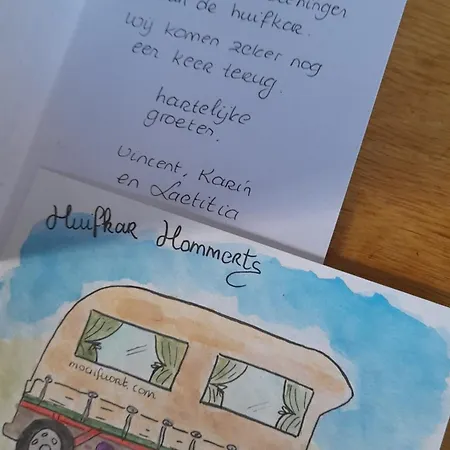 de huifkar.
wij komen zeker nog
een keer terug.
hartelijke
groeten.
Vincent, Karin
en Laetitia
Huifkar Hommerts